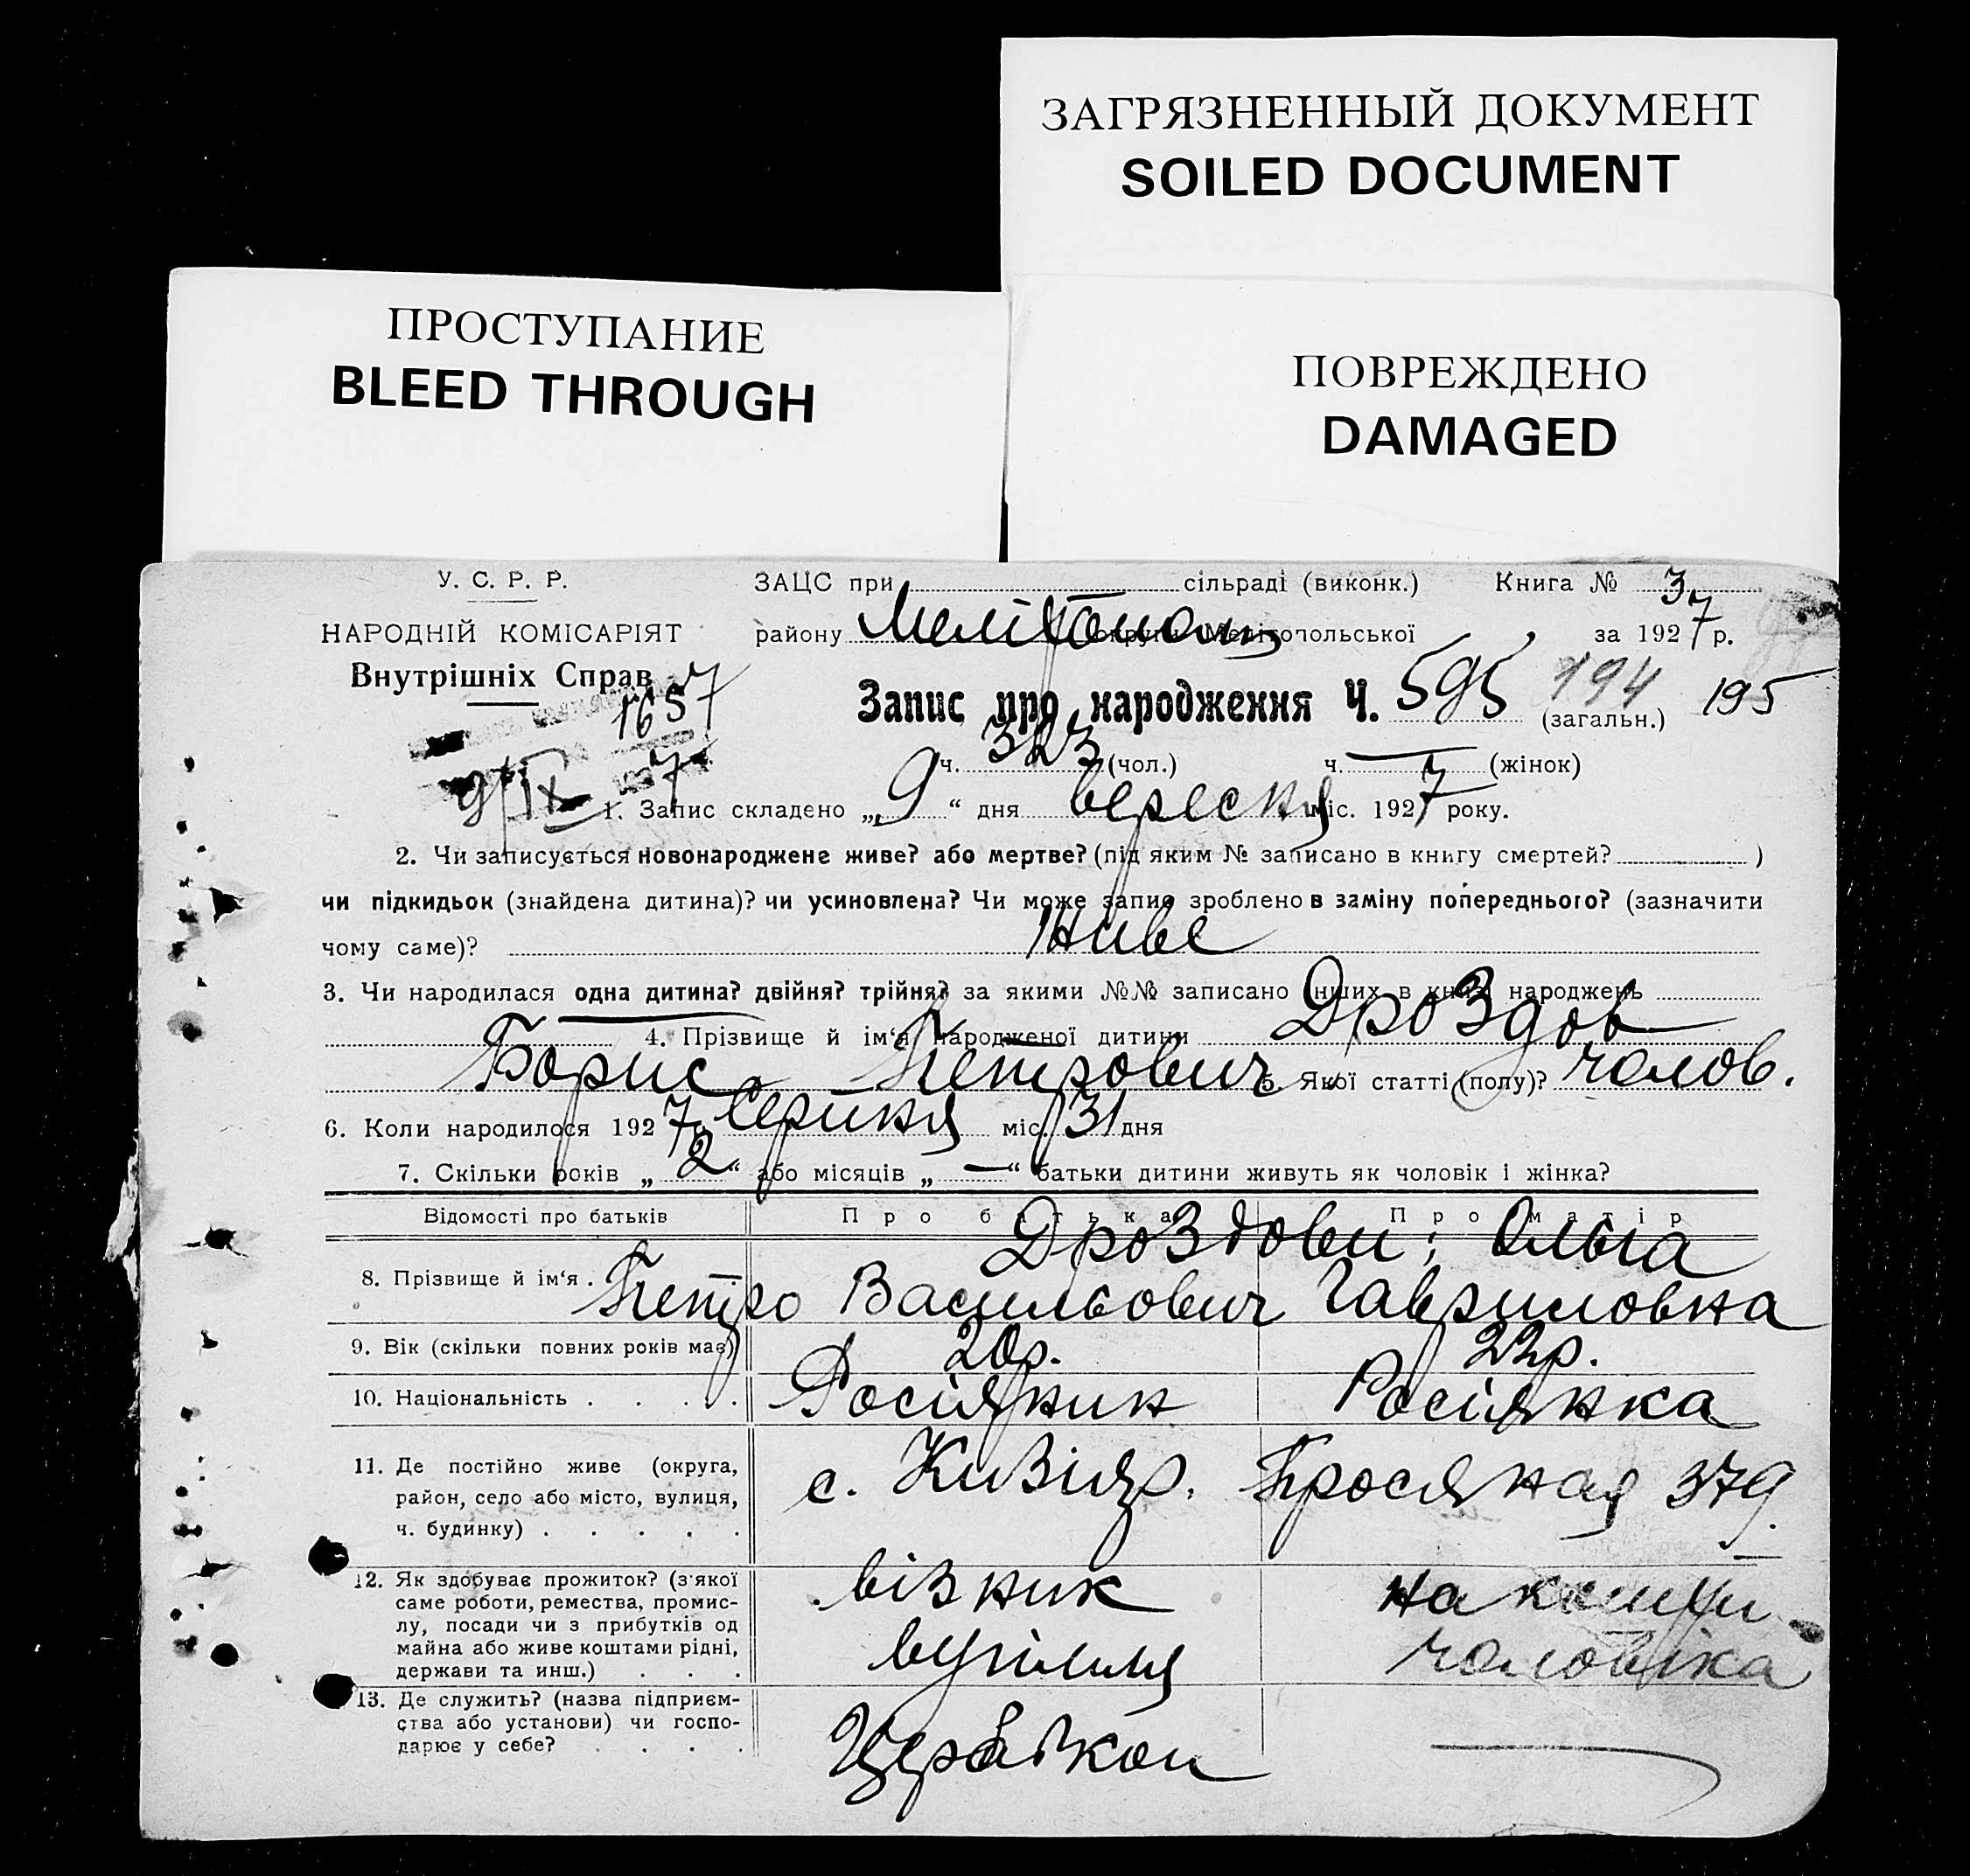 ЗАГРЯЗНЕННЫЙ ДОКУМЕНТ
SOILED DOCUMENT
ПРОСТУПАНИЕ
BLEED THROUGH
ПОВРЕЖДЕНО
DAMAGED
У. С. Р. Р.
НАРОДНІЙ КОМІСАРІЯТ
Внутрішніх Справ
1657
9/IX 7
ЗАЦС при сільраді (виконк.) Книга № 3
району Мелітополь округи Мелітопольської за 1927 р.
Запис про народження Ч. 595 (загальн.) 194 195
ч. 323 (чол.) ч. — (жінок)
1. Запис складено „9“ дня вересня міс. 1927 року.
2. Чи записується новонароджене живе? або мертве? (під яким № записано в книгу смертей? )
чи підкидьок (знайдена дитина)? чи усиновлена? Чи може запис зроблено в заміну попереднього? (зазначити
чому саме)? живе
3. Чи народилася одна дитина? двійня? трійня? за якими №№ записано інших в книзі народжень
4. Прізвище й ім'я народженої дитини Дроздов
Борис Петрович 5. Якої статті (полу)? чолов.
6. Коли народилося 1927 р. Серпня міс. 31 дня
7. Скільки років „2“ або місяців „—“ батьки дитини живуть як чоловік і жінка?
Відомості про батьків Про батька Про матір
Дроздови; Ольга
8. Прізвище й ім'я . Петро Васильович Гавриловна
9. Вік (скільки повних років має) 20 р. 22 р.
10. Національність . . . . . Росіянин Росіянка
11. Де постійно живе (округа,
район, село або місто, вулиця,
ч. будинку) . . . . .
с. Кизіяр. Просяная 379.
12. Як здобуває прожиток? (з якої
саме роботи, ремества, промис-
лу, посади чи з прибутків од
майна або живе коштами рідні,
держави та инш.) . . .
візник
вугілля
на кошти
чоловіка
13. Де служить? (назва підприєм-
ства або установи) чи госпо-
дарює у себе? . . . .